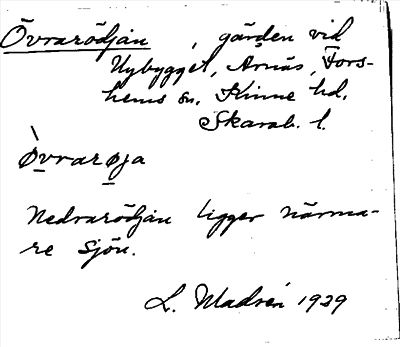 Övrarödjan, gärden vid
Nybygget, Årnäs, Fors-
hems sn, Kinne hd,
Skarab. l.
Øvrarøja
Nedrarödjan ligger närma-
re sjön.
L. Madsén 1929